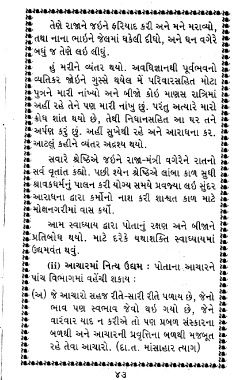 તેણે રાજાને જઇને ફરિયાદ કરી અને મને મરાવ્યો,
તથા નાના ભાઇને જેલમાં ધકેલી દીધો, અને ધન વગેરે
બધું જ તેણે લઇ લીધું.
હું મરીને વ્યંતર થયો. અવધિજ્ઞાનથી પૂર્વભવનો
વ્યતિકર જોઇને ગુસ્સે થયેલ મેં પરિવારસહિત મોટા
પુત્રને મારી નાંખ્યો અને બીજો કોઇ માણસ રાત્રિમાં
અહીં રહે તેને પણ મારી નાંખુ છું. પરંતુ અત્યારે મારો
ક્રોધ શાંત થયો છે, તેથી નિધાનસહિત આ ઘર તને
અર્પણ કરું છું. અહીં સુખેથી રહે અને આરાધના કર.
આટલું કહીને વ્યંતર અદૃશ્ય થયો.
સવારે શ્રેષ્ઠિએ જઇને રાજા-મંત્રી વગેરેને રાતનો
સર્વ વૃત્તાંત કહ્યો. પછી શ્યેને શ્રેષ્ઠિએ લાંબા કાળ સુધી
શ્રાવકધર્મનું પાલન કરી યોગ્ય સમયે પ્રવ્રજ્યા લઇ સુંદર
આરાધના દ્વારા કર્મોનો નાશ કરી શાશ્વત કાળ માટે
મોક્ષનગરીમાં વાસ કર્યો.
આમ સ્વાધ્યાય દ્વારા પોતાનું રક્ષણ અને બીજાને
પ્રતિબોધ થયો. માટે દરેકે યથાશક્તિ સ્વાધ્યાયમાં
ઉદ્યમવંત થવું.
(ii) આચારમાં નિત્ય ઉદ્યમ : પોતાના આચારને
પાંચ વિભાગમાં વહેંચી શકાય :
(અ) જે આચારો સહજ રીતે-સારી રીતે પળાય છે, જેનો
ભાવ પણ સ્વભાવ જેવો થઇ ગયો છે, જેને
વારંવાર યાદ ન કરીએ તો પણ પ્રબળ સંસ્કારના
બળથી અને આચારની પ્રવૃત્તિના બળથી મજબૂત
રહે તેવા આચારો. (દા.ત. માંસાહાર ત્યાગ)
૪૭